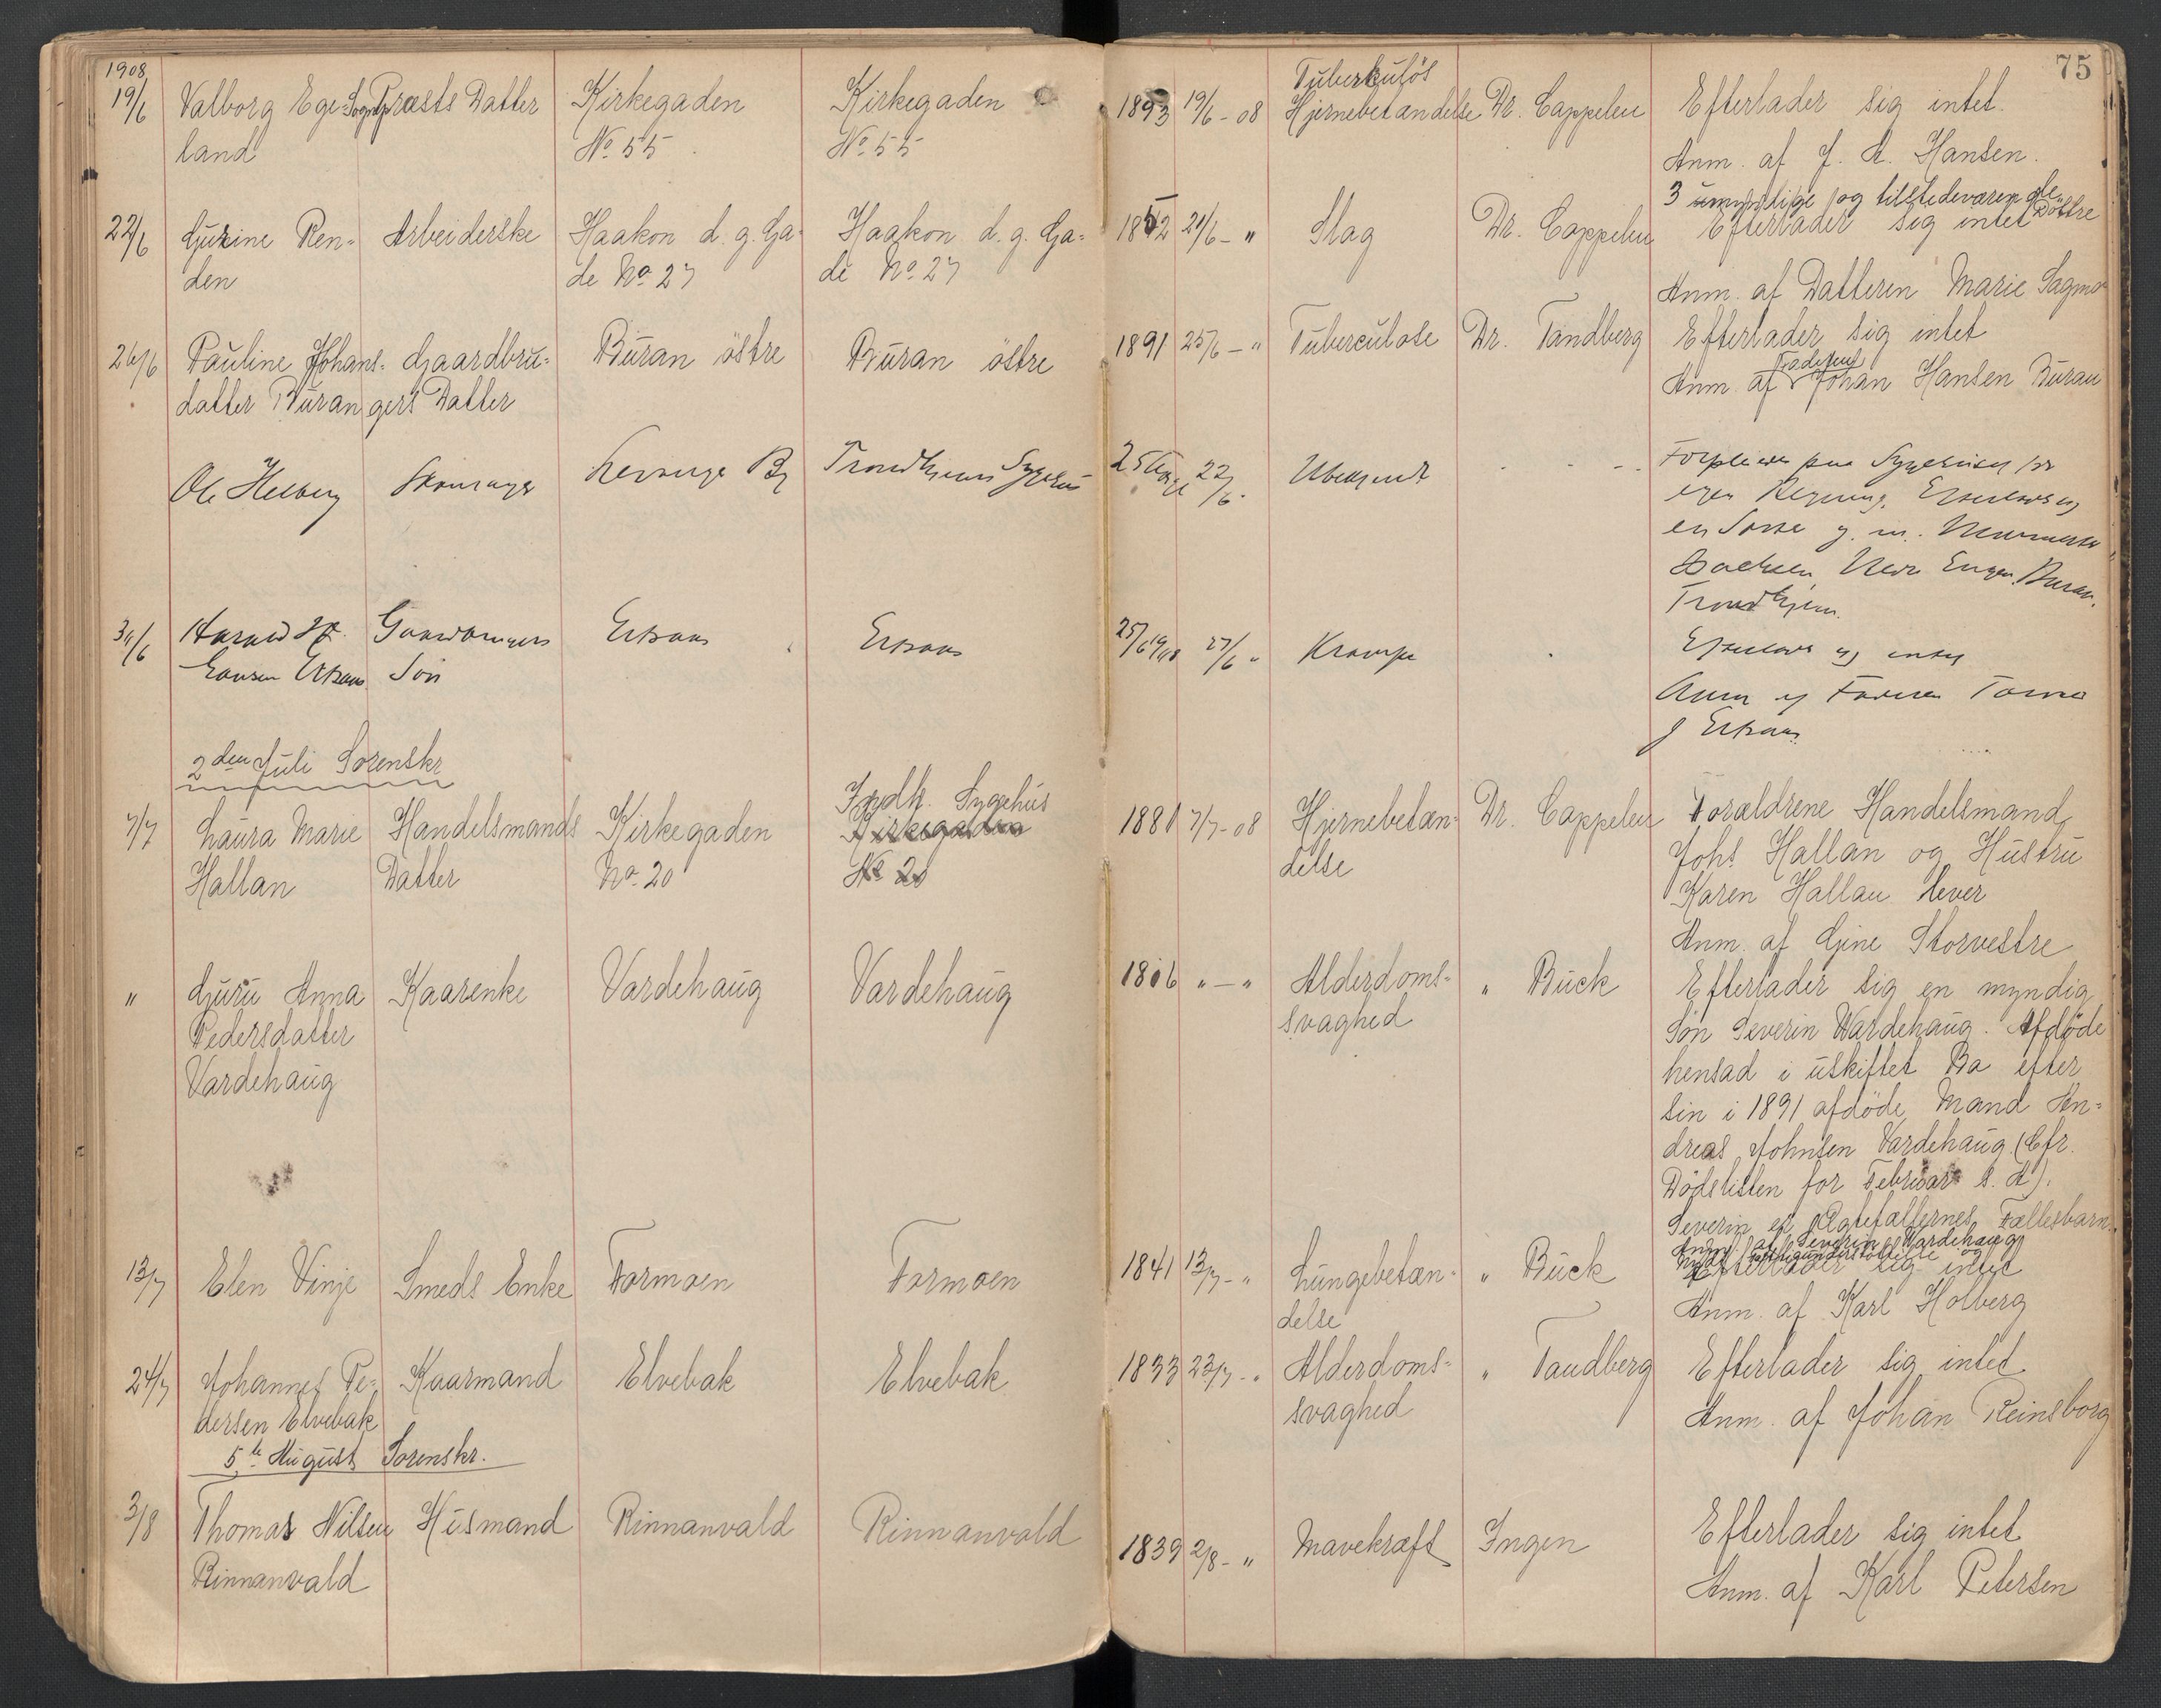 75
1908
19/6 Valborg Ege- Sogneprests Datter Kirkegaden Kirkegaden 1893 19/6 - 08 Tuberkuløs Hjernebetændelse Dr. Cappelen Efterlader sig intet.
land No 55 No 55 Anm. af J. A. Hansen.
3 umyndige og tilstedeværende Døttre
22/6 Gurine Ren- Arbeiderske Haakon d. g. Ga- Haakon d. g. Ga- 1852 21/6 - " Slag Dr. Cappelen Efterlader sig intet
den de No 27 de No 27 Anm. af Datteren Marie Sagmo
26/6 Pauline Johans- Gaardbru- Buran östre Buran östre 1891 25/6 - " Tuberculose Dr. Tandberg Efterlader sig intet
datter Buran gers Datter Anm. af Faderen Johan Hansen Buran
Ole Helberg Levanger By Trondhjems Sygehus 25 Aar gl 22/6 Ubekjendt paa Sygehuset for
egen Regning.
en
Trondhjem.
30/6 Harald Gaardbrugers 25/6 1908 27/6 " Krampe Efterlader sig intet
Søn Anm af Faderen
2den Juli Sorenskr
7/7 Laura Marie Handelsmands Kirkegaden Trdhj. Sygehus Kirkegaden 1881 7/7 - 08 Hjernebetæn- Dr. Cappelen Forældrene Handelsmand
Hallan Datter No 20 No 20 delse Johs Hallan og Hustru
Karen Hallan lever
Anm. af Gine Storvestre
" Guru Anna Kaarenke Vardehaug Vardehaug 1816 " - " Alderdoms- " Buck Efterlader sig en myndig
Pedersdatter svaghed Søn Severin Wardehaug. Afdöde
Vardehaug hensad i uskiftet Bo efter
sin i 1891 afdöde Mand An-
dreas Johnsen Vardehaug. (Cfr.
Dødslisten for Februar s. A).
Severin er Ægtefællernes Fællesbarn.
Anm. af Severin Wardehaug
Nyder fattigunderstöttelse og
13/7 Elen Vinje Smeds Enke Formoen Formoen 1841 13/7 - " Lungebetæn- " Buck Efterlader sig intet
delse Anm. af Karl Holberg
24/7 Johannes Pe- Kaarmand Elvebak Elvebak 1833 23/7 - " Alderdoms- " Tandberg Efterlader sig intet
dersen Elvebak svaghed Anm. af Johan Reinsborg
5te August Sorenskr.
3/8 Thomas Nilsen Husmand Rinnanvald Rinnanvald 1839 2/8 - " Mavekræft Ingen Efterlader sig intet
Rinnanvald Anm. af Karl Petersen